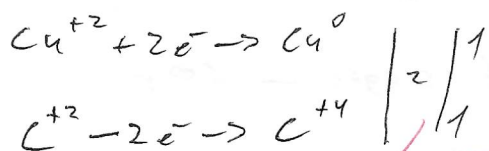 Cu⁺² + 2e⁻ → Cu⁰ | 2 | 1
C⁺² − 2e⁻ → C⁺⁴ | | 1